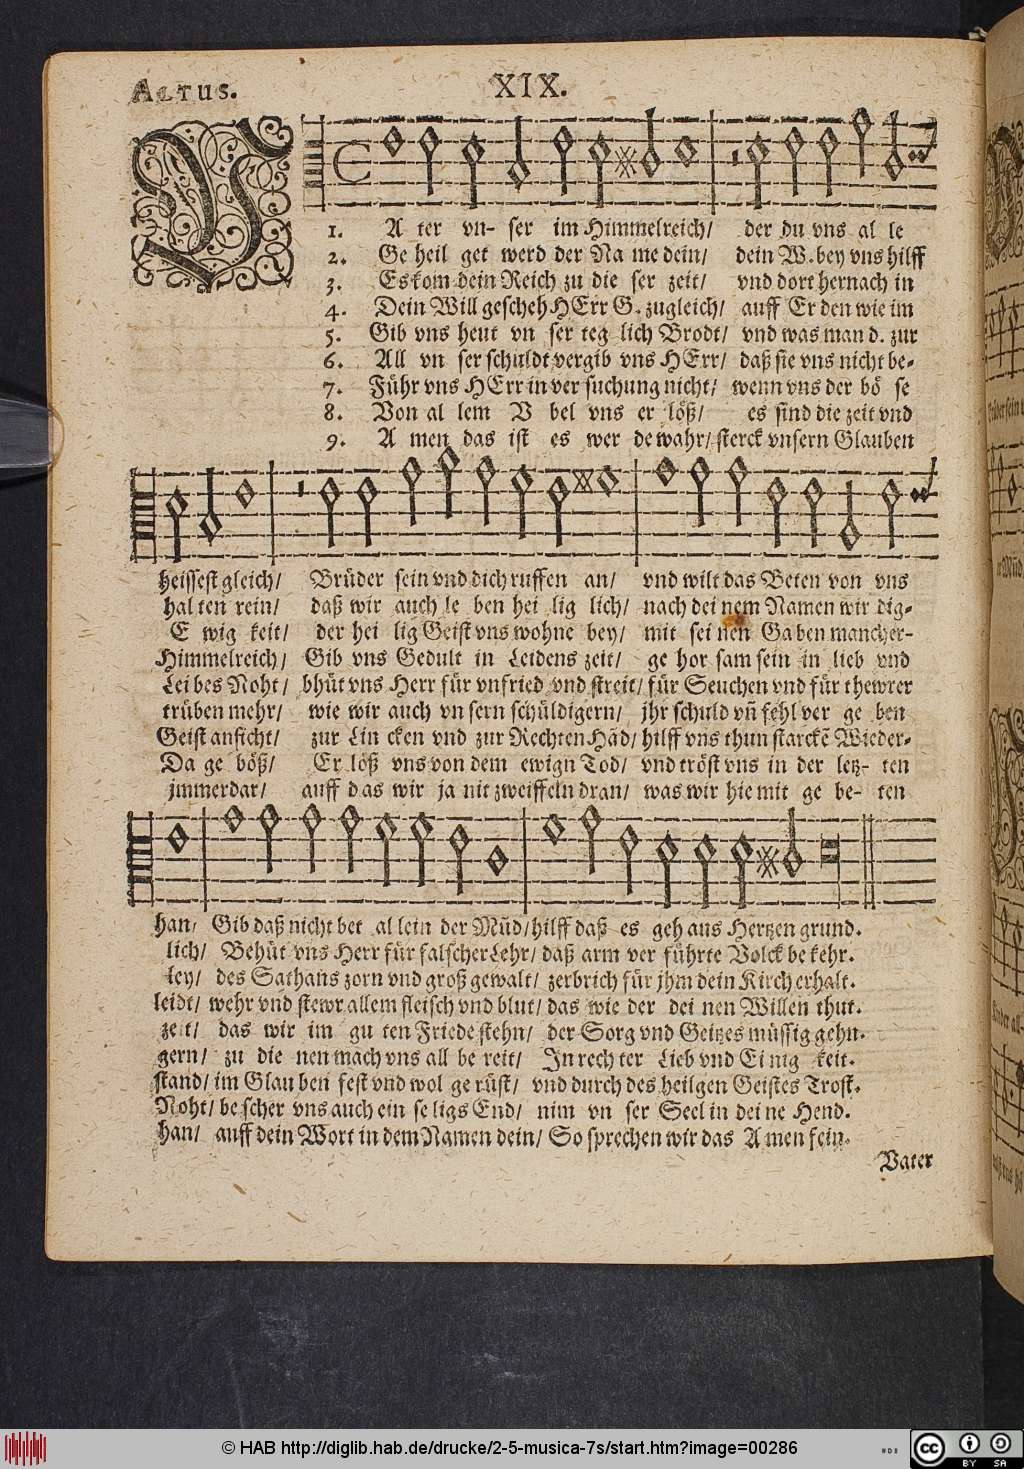 ALTUS. XIX.
V
1. A ter vn- ser im Himmelreich/ der du vns al le
2. Ge heil get werd der Na me dein/ dein W. bey vns hilff
3. Es kom dein Reich zu die ser zeit/ vnd dort hernach in
4. Dein Will gescheh HErr G. zugleich/ auff Er den wie im
5. Gib vns heut vn ser teg lich Brodt/ vnd was man d. zur
6. All vn ser schuldt vergib vns HErr/ daß sie vns nicht be-
7. Führ vns HErr in ver suchung nicht/ wenn vns der bö se
8. Von al lem V bel vns er löß/ es sind die zeit vnd
9. A men das ist es wer de wahr/ sterck vnsern Glauben
heissest gleich/ Brüder sein vnd dich ruffen an/ vnd wilt das Beten von vns
hal ten rein/ daß wir auch le ben hei lig lich/ nach dei nem Namen wir dig-
E wig keit/ der hei lig Geist vns wohne bey/ mit sei nen Ga ben mancher-
Himmelreich/ Gib vns Gedult in Leidens zeit/ ge hor sam sein in lieb vnd
Lei bes Noht/ bhüt vns Herr für vnfried vnd streit/ für Seuchen vnd für thewrer
trüben mehr/ wie wir auch vn sern schüldigern/ jhr schuld vñ fehl ver ge ben
Geist anficht/ zur Lin cken vnd zur Rechten Hãd/ hilff vns thun starckẽ Wieder-
Da ge böß/ Er löß vns von dem ewign Tod/ vnd tröst vns in der letz- ten
jmmerdar/ auff das wir ja nit zweiffeln dran/ was wir hie mit ge be- ten
han/ Gib daß nicht bet al lein der Müd/ hilff daß es geh aus Hertzen grund.
lich/ Behüt vns Herr für falscher Lehr/ daß arm ver führte Volck be kehr.
ley/ des Sathans zorn vnd groß gewalt/ zerbrich für jhm dein Kirch erhalt.
leidt/ wehr vnd stewr allem fleisch vnd blut/ das wie der dei nen Willen thut.
zeit/ das wir im gu ten Friede stehn/ der Sorg vnd Geitzes müssig gehn.
gern/ zu die nen mach vns all be reit/ In rech ter Lieb vnd Ei nig keit.
stand/ im Glau ben fest vnd wol ge rüst/ vnd durch des heilgen Geistes Trost.
Noht/ be scher vns auch ein se ligs End/ nim vn ser Seel in dei ne Hend.
han/ auff dein Wort in dem Namen dein/ So sprechen wir das A men fein.
Vater
© HAB http://diglib.hab.de/drucke/2-5-musica-7s/start.htm?image=00286
BY SA